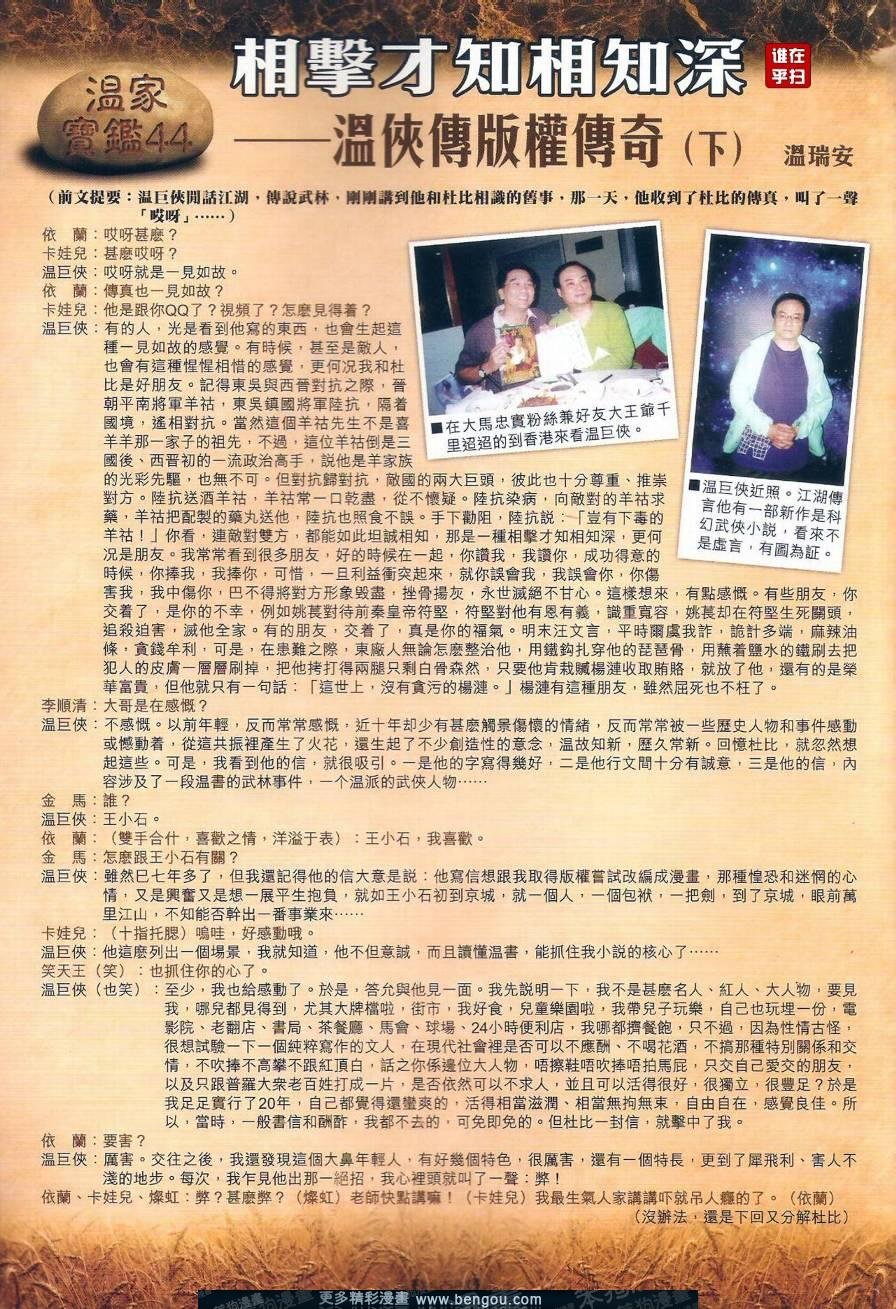 相擊才知相知深
誰在乎扫
溫家
寶鑑44
——溫俠傳版權傳奇（下） 溫瑞安
（前文提要：温巨俠閒話江湖，傳說武林，剛剛講到他和杜比相識的舊事，那一天，他收到了杜比的傳真，叫了一聲
「哎呀」……）
依　蘭：哎呀甚麽？
卡娃兒：甚麽哎呀？
温巨俠：哎呀就是一見如故。
依　蘭：傳真也一見如故？
卡娃兒：他是跟你QQ了？視頻了？怎麽見得着？
温巨俠：有的人，光是看到他寫的東西，也會生起這
種一見如故的感覺。有時候，甚至是敵人，
也會有這種惺惺相惜的感覺，更何況我和杜
比是好朋友。記得東吳與西晉對抗之際，晉
朝平南將軍羊祜，東吳鎮國將軍陸抗，隔着
國境，遙相對抗。當然這個羊祜先生不是喜
羊羊那一家子的祖先，不過，這位羊祜倒是三
國後、西晉初的一流政治高手，說他是羊家族
的光彩先驅，也無不可。但對抗歸對抗，敵國的兩大巨頭，彼此也十分尊重、推崇
對方。陸抗送酒羊祜，羊祜常一口乾盡，從不懷疑。陸抗染病，向敵對的羊祜求
藥，羊祜把配製的藥丸送他，陸抗也照食不誤。手下勸阻，陸抗説：「豈有下毒的
羊祜！」你看，連敵對雙方，都能如此坦誠相知，那是一種相擊才知相知深，更何
況是朋友。我常常看到很多朋友，好的時候在一起，你讚我，我讚你，成功得意的
時候，你捧我，我捧你，可惜，一旦利益衝突起來，就你誤會我，我誤會你，你傷
害我，我中傷你，巴不得將對方形象毀盡，挫骨揚灰，永世滅絕不甘心。這樣想來，有點感慨。有些朋友，你
交着了，是你的不幸，例如姚萇對待前秦皇帝符堅，符堅對他有恩有義，識重寬容，姚萇却在符堅生死關頭，
追殺迫害，滅他全家。有的朋友，交着了，真是你的福氣。明末汪文言，平時爾虞我詐，詭計多端，麻辣油
條，貪錢牟利，可是，在患難之際，東廠人無論怎麽整治他，用鐵鈎扎穿他的琵琶骨，用蘸着鹽水的鐵刷去把
犯人的皮膚一層層刷掉，把他拷打得兩腿只剩白骨森然，只要他肯栽贓楊漣收取賄賂，就放了他，還有的是榮
華富貴，但他就只有一句話：「這世上，沒有貪污的楊漣。」楊漣有這種朋友，雖然屈死也不枉了。
李順清：大哥是在感慨？
温巨俠：不感慨。以前年輕，反而常常感慨，近十年却少有甚麽觸景傷懷的情緒，反而常常被一些歷史人物和事件感動
或憾動着，從這共振裡產生了火花，還生起了不少創造性的意念，温故知新，歷久常新。回憶杜比，就忽然想
起這些。可是，我看到他的信，就很吸引。一是他的字寫得幾好，二是他行文間十分有誠意，三是他的信，內
容涉及了一段温書的武林事件，一个温派的武俠人物……
金　馬：誰？
温巨俠：王小石。
依　蘭：（雙手合什，喜歡之情，洋溢于表）：王小石，我喜歡。
金　馬：怎麽跟王小石有關？
温巨俠：雖然巳七年多了，但我還記得他的信大意是説：他寫信想跟我取得版權嘗試改編成漫畫，那種惶恐和迷惘的心
情，又是興奮又是想一展平生抱負，就如王小石初到京城，就一個人，一個包袱，一把劍，到了京城，眼前萬
里江山，不知能否幹出一番事業來……
卡娃兒：（十指托腮）嗚哇，好感動哦。
温巨俠：他這麽列出一個場景，我就知道，他不但意誠，而且讀懂温書，能抓住我小説的核心了……
笑天王（笑）：也抓住你的心了。
温巨俠（也笑）：至少，我也給感動了。於是，答允與他見一面。我先説明一下，我不是甚麽名人、紅人、大人物，要見
我，哪兒都見得到，尤其大牌檔啦，街市，我好食，兒童樂園啦，我帶兒子玩樂，自己也玩埋一份，電
影院、老翻店、書局、茶餐廳、馬會、球場、24小時便利店，我哪都擠餐飽，只不過，因為性情古怪，
很想試驗一下一個純粹寫作的文人，在現代社會裡是否可以不應酬、不喝花酒，不搞那種特別關係和交
情，不吹捧不高攀不跟紅頂白，話之你係邊位大人物，唔擦鞋唔吹捧唔拍馬屁，只交自己愛交的朋友，
以及只跟普羅大衆老百姓打成一片，是否依然可以不求人，並且可以活得很好，很獨立，很豐足？於是
我足足實行了20年，自己都覺得還蠻爽的，活得相當滋潤、相當無拘無束，自由自在，感覺良佳。所
以，當時，一般書信和酬酢，我都不去的，可免即免的。但杜比一封信，就擊中了我。
依　蘭：要害？
温巨俠：厲害。交往之後，我還發現這個大鼻年輕人，有好幾個特色，很厲害，還有一個特長，更到了犀飛利、害人不
淺的地步。每次，我乍見他出那一絕招，我心裡頭就叫了一聲：弊！
依蘭、卡娃兒、燦虹：弊？甚麽弊？（燦虹）老師快點講嘛！（卡娃兒）我最生氣人家講講吓就吊人癮的了。（依蘭）
（沒辦法，還是下回又分解杜比）
■在大馬忠實粉絲兼好友大王爺千
里迢迢的到香港來看温巨俠。
■温巨俠近照。江湖傳
言他有一部新作是科
幻武俠小説，看來不
是虛言，有圖為証。
更多精彩漫畫 www.bengou.com